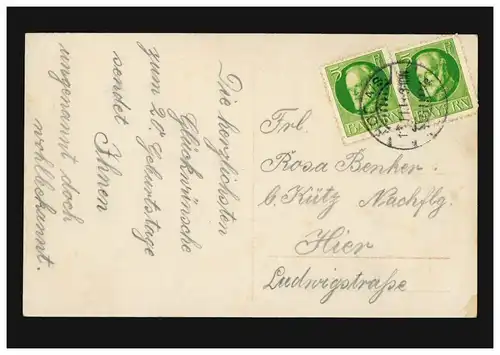 Die herzlichsten
Glückwünsche
zum 20. Geburtstage
sendet Ihnen
ungenannt doch
wohlbekannt.
Frl.
Rosa Benker.
b. Kütz Nachflg.
Hier
Ludwigstraße
5 BAYERN
5 BAYERN